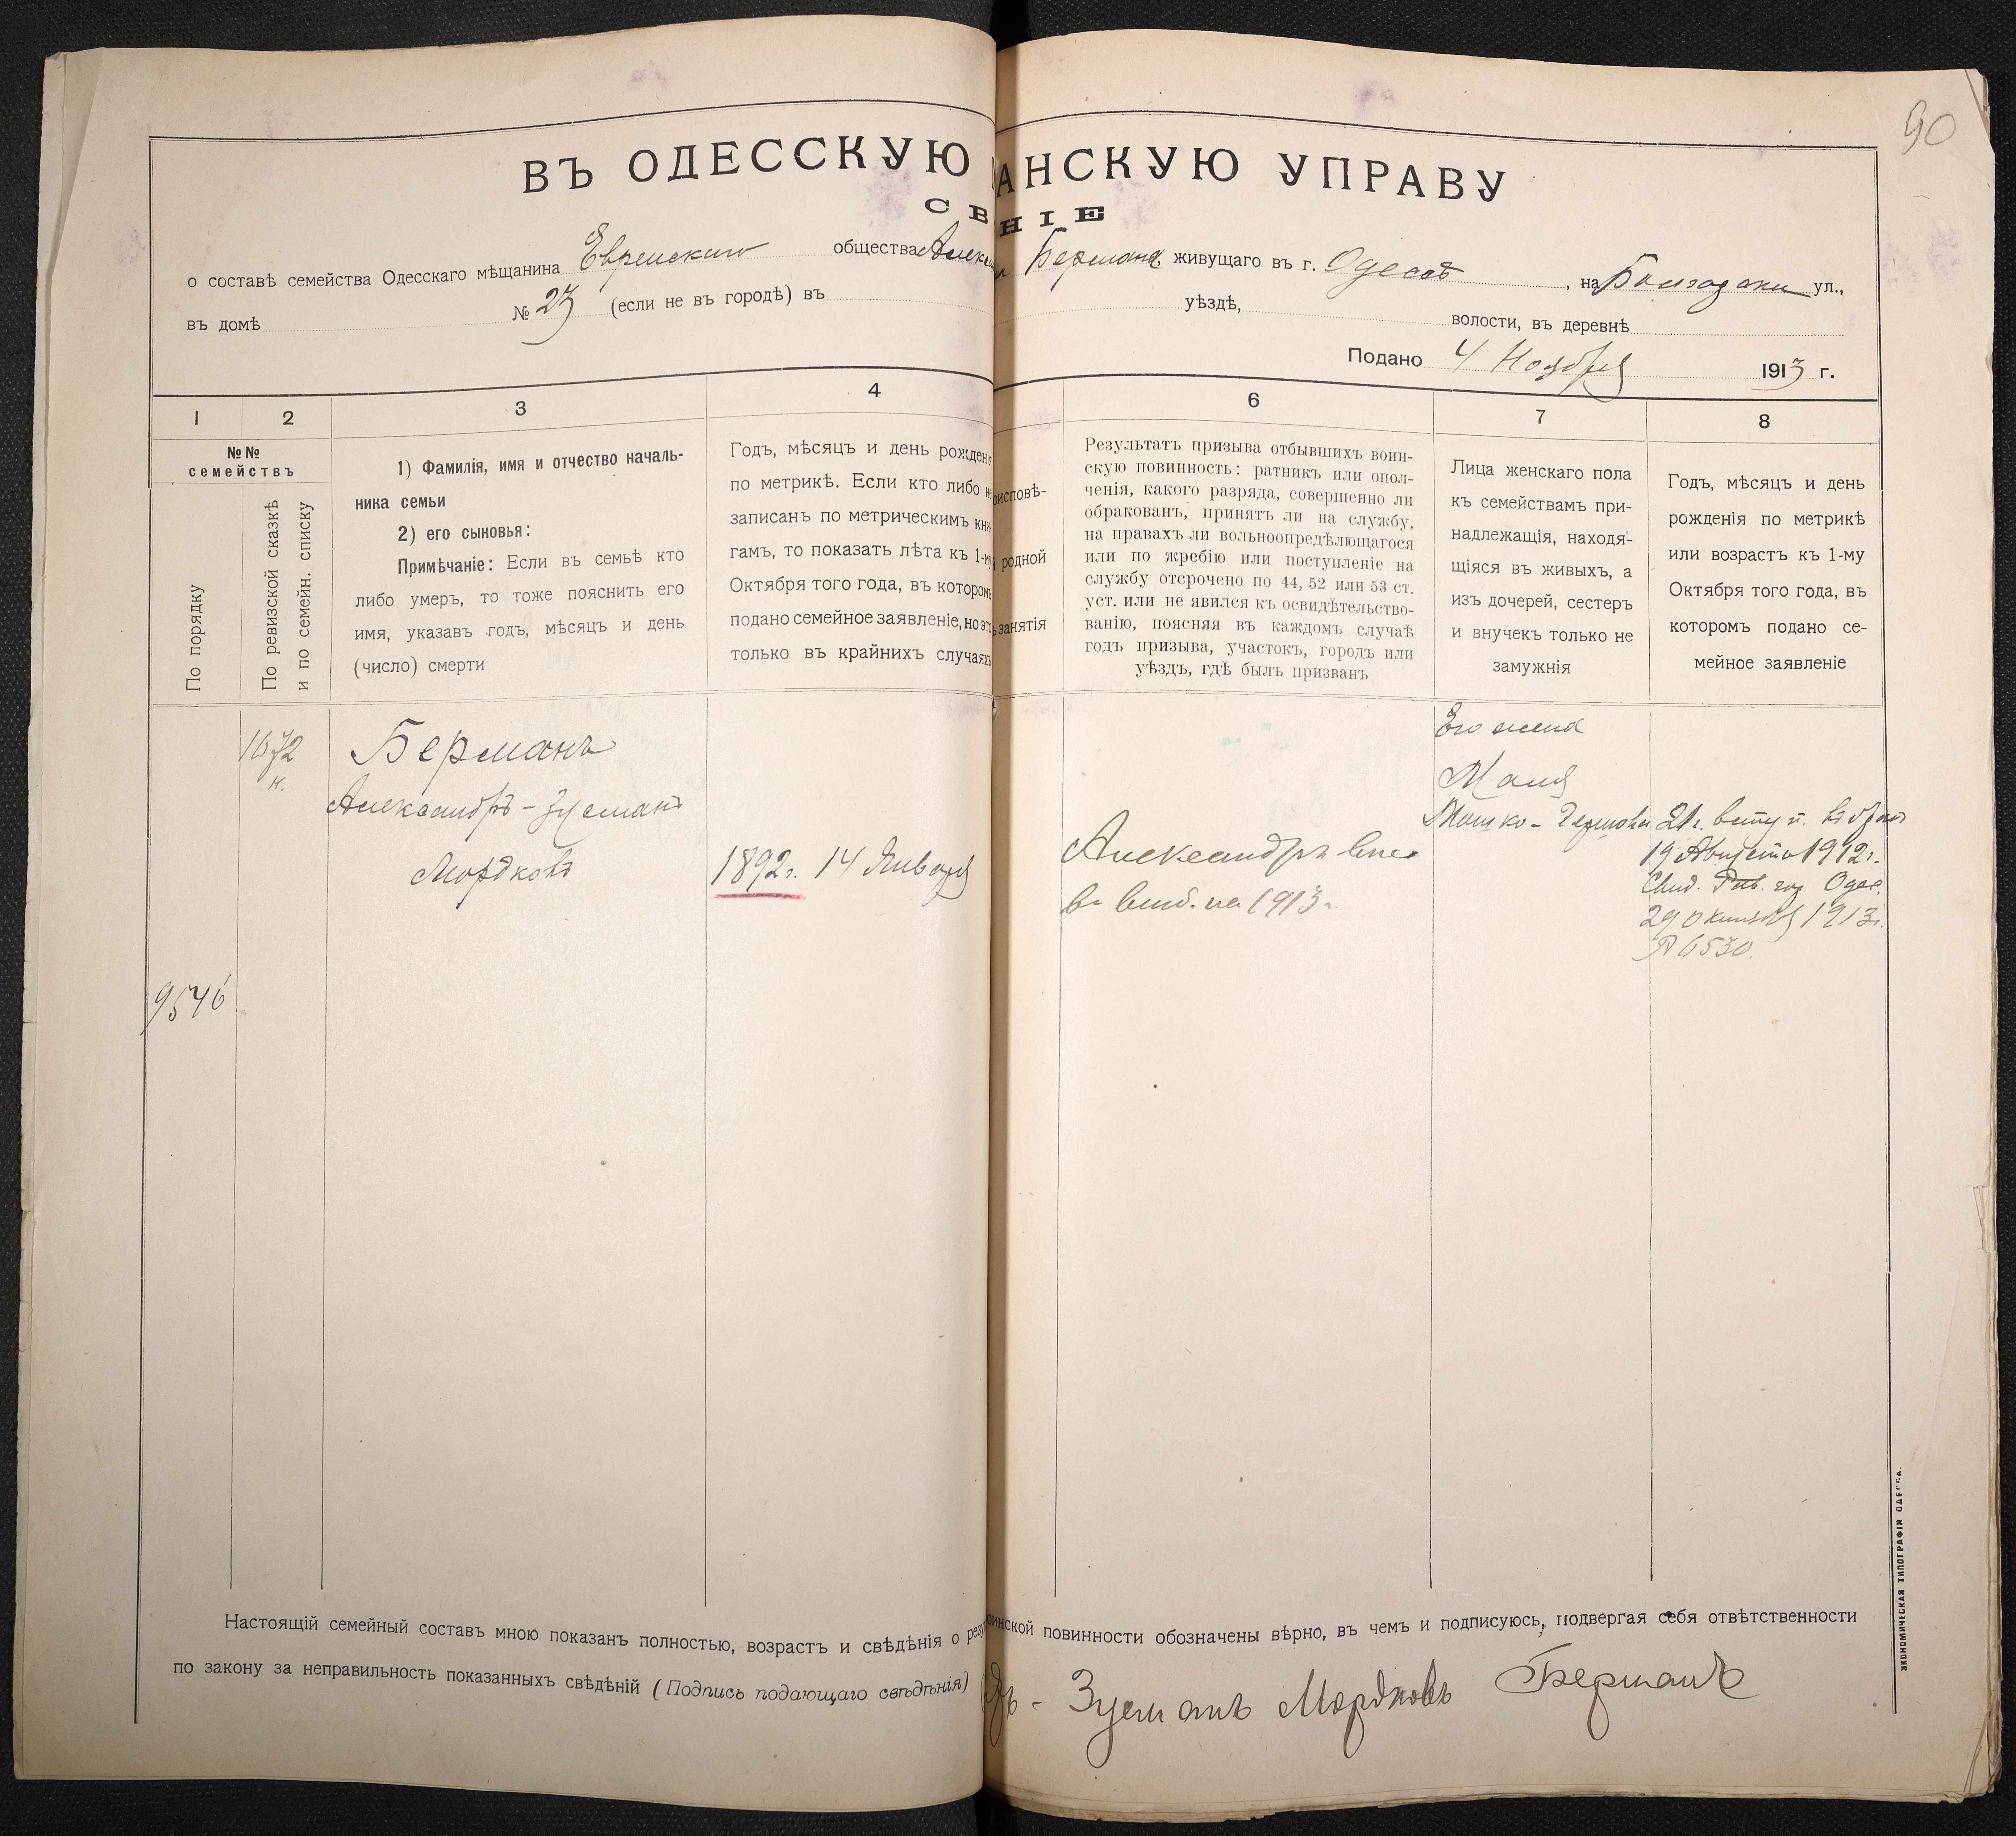 90
ВЪ ОДЕССКУЮ АНСКУЮ УПРАВУ
СВ НІЕ
о составѣ семейства Одесскаго мѣщанина Еврейскаго общества Алекс Бермана живущаго въ г. Одессѣ, на ул.,
въ домѣ № 23 (если не въ городѣ) въ уѣздѣ, волости, въ деревнѣ
Подано 4 Ноября 1913 г.
1 2 3 4 6 7 8
№№ семействъ
По порядку
По ревизской сказкѣ
и по семейн. списку
1) Фамилія, имя и отчество началь-
ника семьи
2) его сыновья:
Примѣчаніе: Если въ семьѣ кто
либо умеръ, то тоже пояснить его
имя, указавъ годъ, мѣсяцъ и день
(число) смерти
Годъ, мѣсяцъ и день рожденія
по метрикѣ. Если кто либо не
записанъ по метрическимъ кни-
гамъ, то показать лѣта къ 1-му
Октября того года, въ которомъ
подано семейное заявленіе, но это
только въ крайнихъ случаяхъ
исповѣ-
родной
занятія
Результатъ призыва отбывшихъ воин-
скую повинность: ратникъ или опол-
ченія, какого разряда, совершенно ли
обракованъ, принятъ ли на службу,
на правахъ ли вольноопредѣляющагося
или по жребію или поступленіе на
службу отсрочено по 44, 52 или 53 ст.
уст. или не явился къ освидѣтельство-
ванію, поясняя въ каждомъ случаѣ
годъ призыва, участокъ, городъ или
уѣздъ, гдѣ былъ призванъ
Лица женскаго пола
къ семействамъ при-
надлежащія, находя-
щіяся въ живыхъ, а
изъ дочерей, сестеръ
и внучекъ только не
замужнія
Годъ, мѣсяцъ и день
рожденія по метрикѣ
или возрастъ къ 1-му
Октября того года, въ
которомъ подано се-
мейное заявленіе
1672
н.
Берманъ
Александръ-Зусманъ
Мордковъ
1892г. 14 Января
Александръ
1913г.
Его жена
Маля
Мошко-Гершова
21г. вступ. въ бракъ
19 Августа 1912г.
Свид. Рав. гор. Одес.
29 Октября 1913г.
№ 6530.
9546
Настоящій семейный составъ мною показанъ полностью, возрастъ и свѣдѣнія о резу инской повинности обозначены вѣрно, въ чемъ и подписуюсь, подвергая себя отвѣтственности
по закону за неправильность показанныхъ свѣдѣній (Подпись подающаго свѣдѣнія) дръ - Зусманъ Мордковъ Берманъ
ЭКОНОМИЧЕСКАЯ ТИПОГРАФІЯ ОДЕССА.